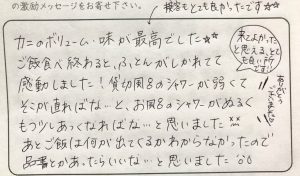 の激励メッセージをお寄せ下さい。
接客もとても良かったです☆
カニのボリューム・味が最高でした☆☆
ご飯食べ終わると、ふとんがしかれてて
感動しました！貸切風呂のシャワーが弱くて
そこが直ればな〜と、お風呂のシャワーがぬるく
もう少しあつくなればな〜と思いました
あとご飯は何が出てくるかわからなかったので
品書とかあったらいいな〜と思いました
来てよかった
と思える、とて
も良い
です!!
ありがとう
ございました